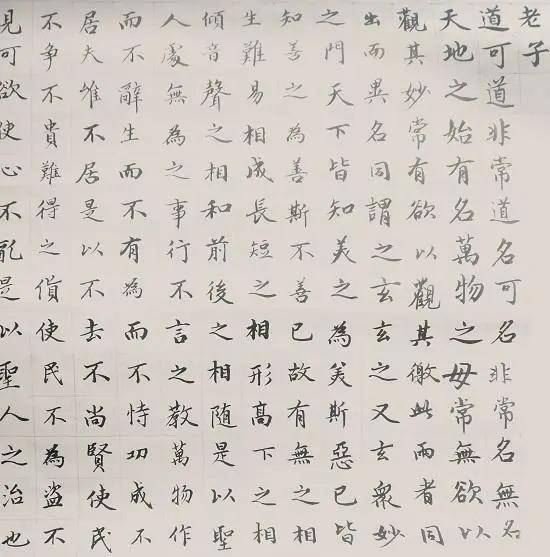 老子
道可道非常道名可名非常名無名
天地之始有名萬物之母常無欲以
觀其妙常有欲以觀其徼此兩者同
出而異名同謂之玄玄之又玄衆妙
之門天下皆知美之為美斯惡已皆
知善之為善斯不善已故有無之相
生難易相成長短之相形高下之相
傾音聲之相和前後之相隨是以聖
人處無為之事行不言之教萬物作
而不辭生而不有為而不恃功成不
居夫唯不居是以不去不尚賢使民
不争不貴難得之貨使民不為盜不
見可欲使心不亂是以聖人之治也